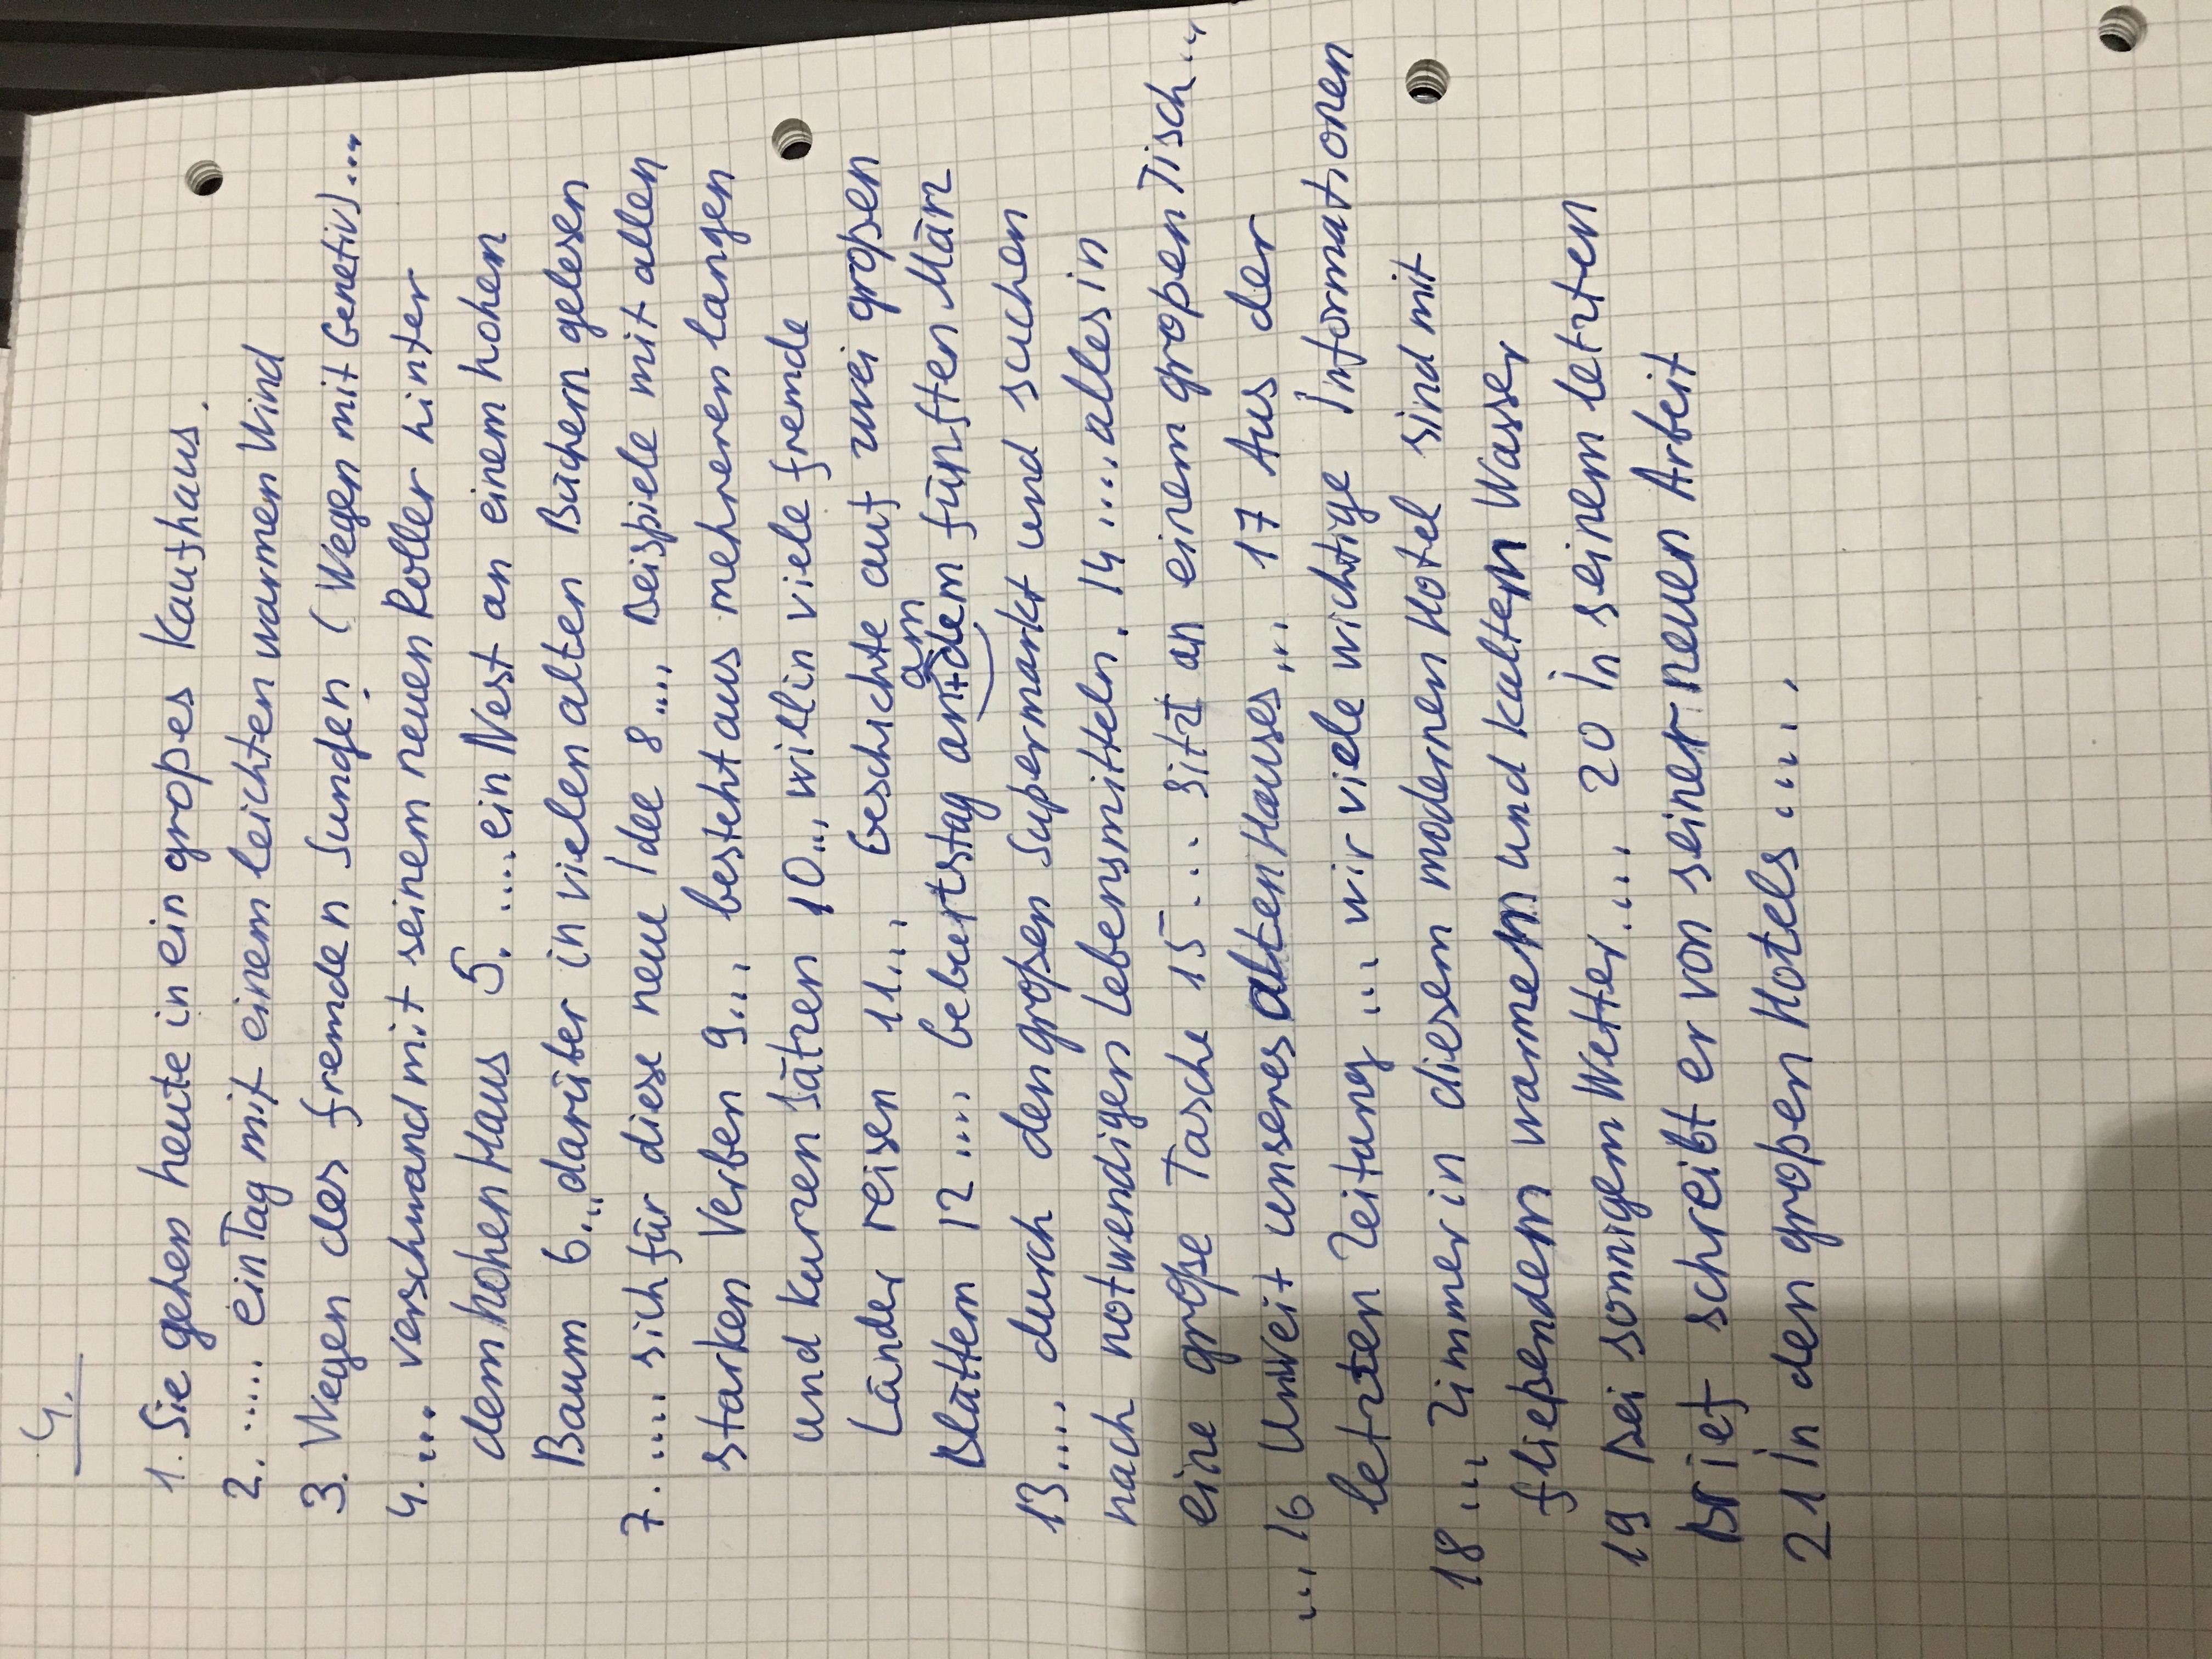 4.
1. Sie gehen heute in ein großes Kaufhaus.
2. ..... ein Tag mit einem leichten warmen Wind
3. Wegen des fremden Jungen (Wegen mit Genetiv)...
4. ... verschwand mit seinem neuen Roller hinter
dem hohen Haus 5. .... ein Nest an einem hohen
Baum 6. ... darüber in vielen alten Büchern gelesen
7. .... sich für diese neue Idee 8 ..., Beispiele mit allen
starken Verben 9 ..., besteht aus mehreren langen
und kurzen Sätzen 10 .., will in viele fremde
Länder reisen 11 ..., Geschichte auf zwei großen
Blättern 12 .... Geburtstag an+dem fünften März
am
13 .... durch den großen Supermarkt und suchen
nach notwendigen Lebensmitteln. 14 .... alles in
eine große Tasche 15 ... sitzt an einem großen Tisch ...
... 16 Unweit unseres alten Hauses ... 17 Aus der
letzten Zeitung ... wir viele wichtige Informationen
18 ... Zimmer in diesem modernen Hotel sind mit
fließendem warmem und kaltem Wasser
19 Bei sonnigem Wetter .... 20 In seinem letzten
Brief schreibt er von seiner neuen Arbeit
21 In den großen Hotels ....